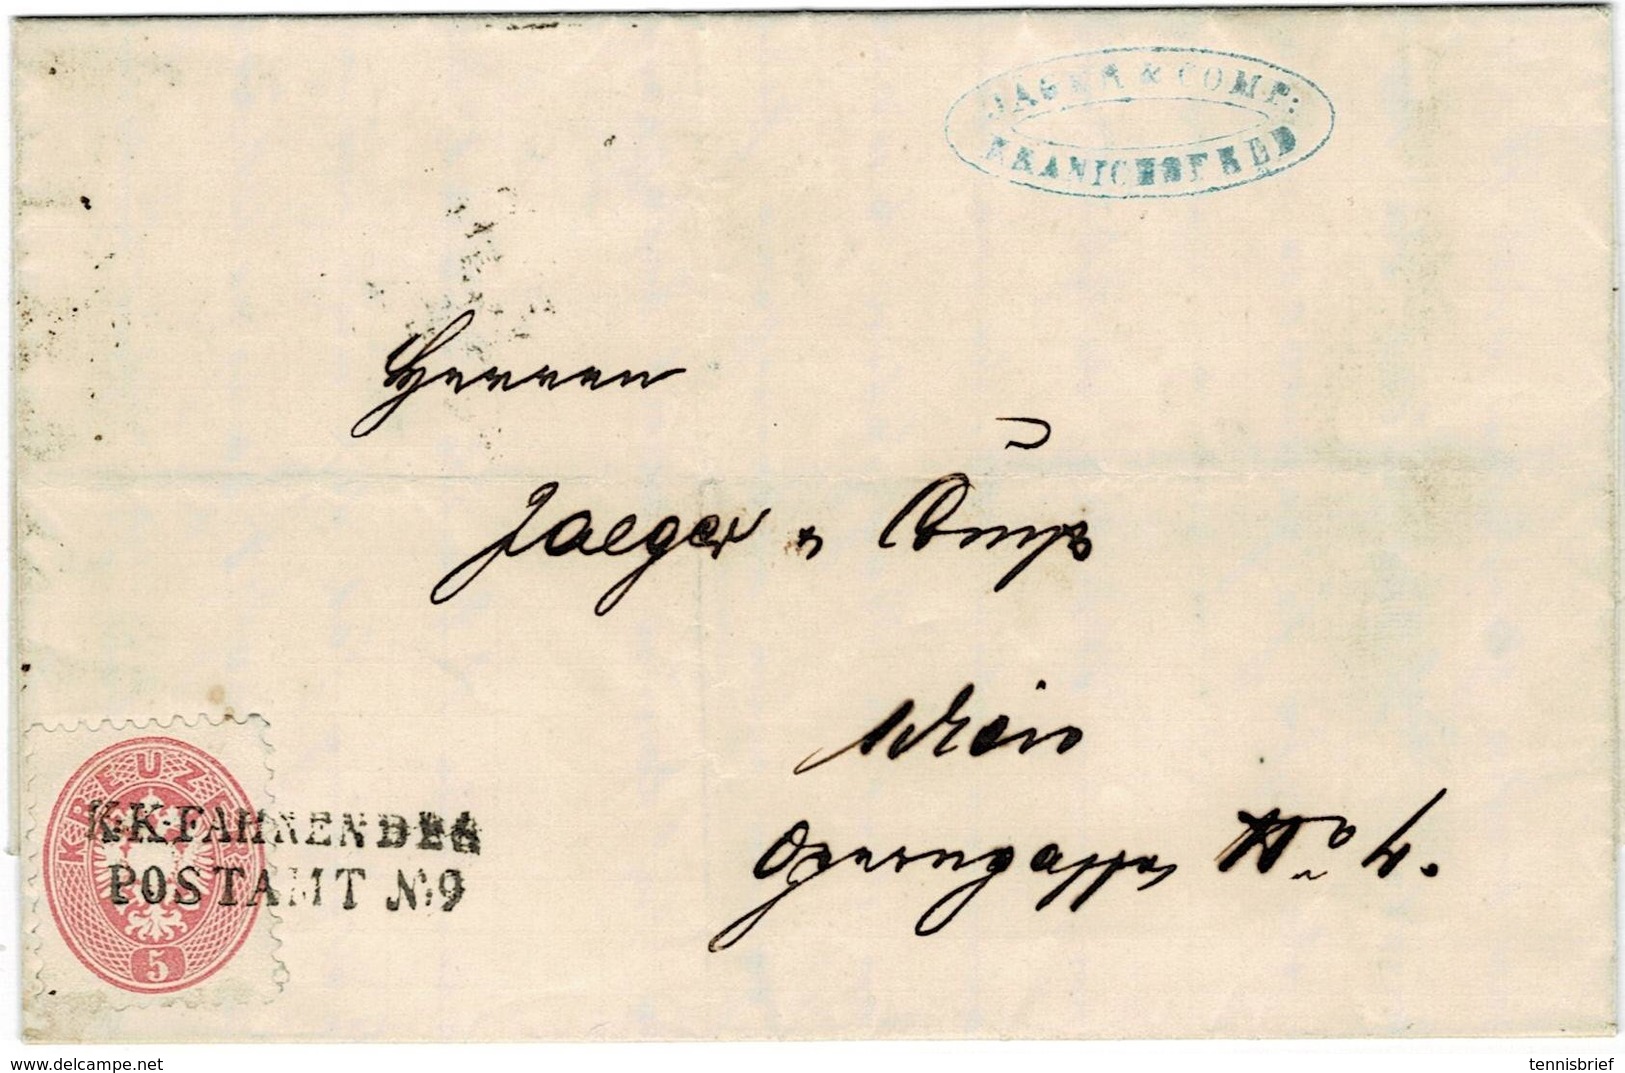 JAGER & COMP:
KRANICHSFELD
Herren
Jaeger & Comp
Wien
Operngasse No 4.
KREUZER
5
K:K:FAHRENDES
POSTAMT No 9
delcampe.net
tennisbrief